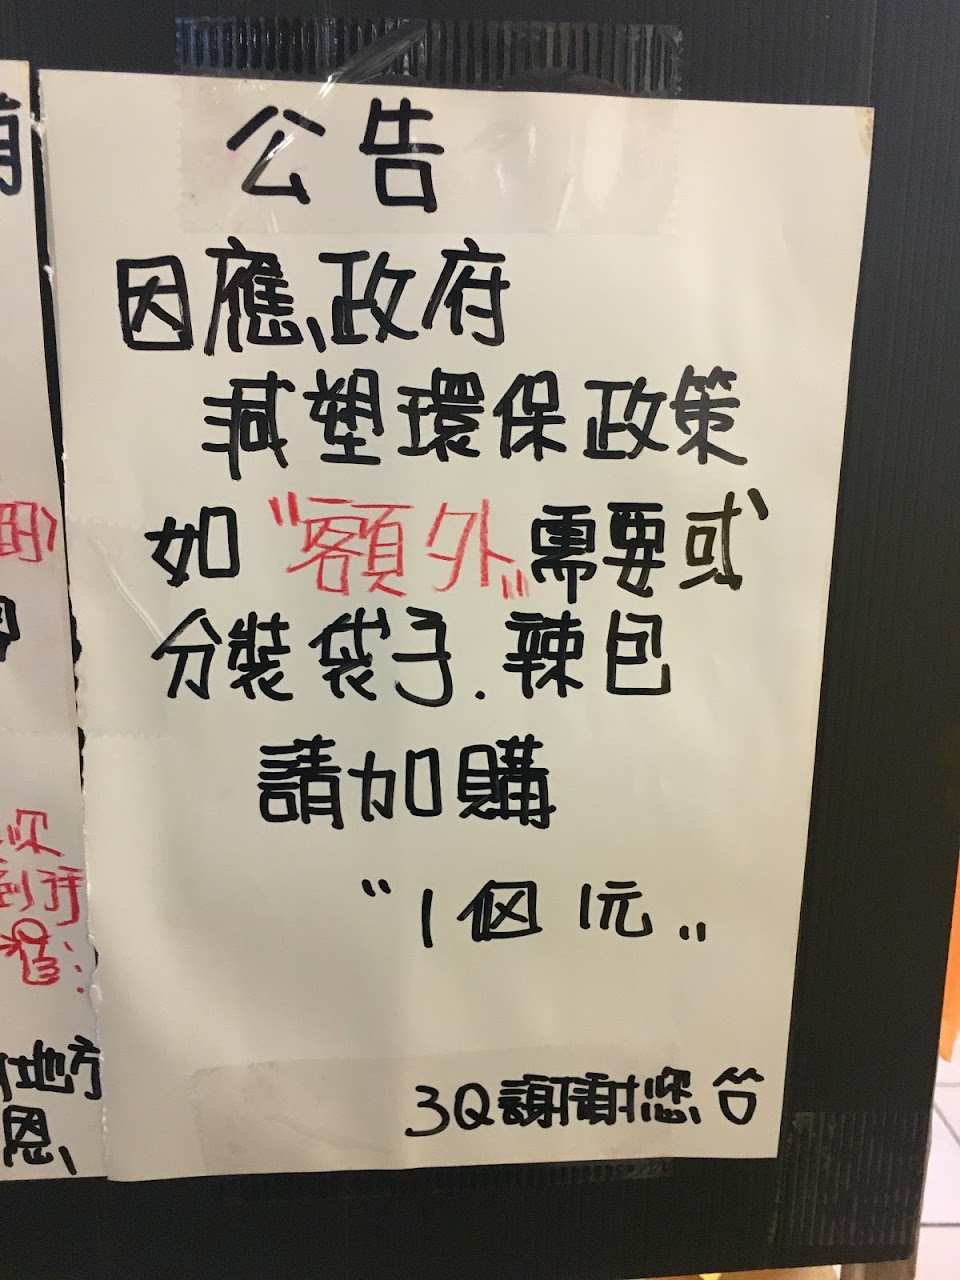 公告
因應政府
減塑環保政策
如"額外"需要或
分裝袋子.辣包
請加購
"1個1元"
3Q謝謝您
地方
恩